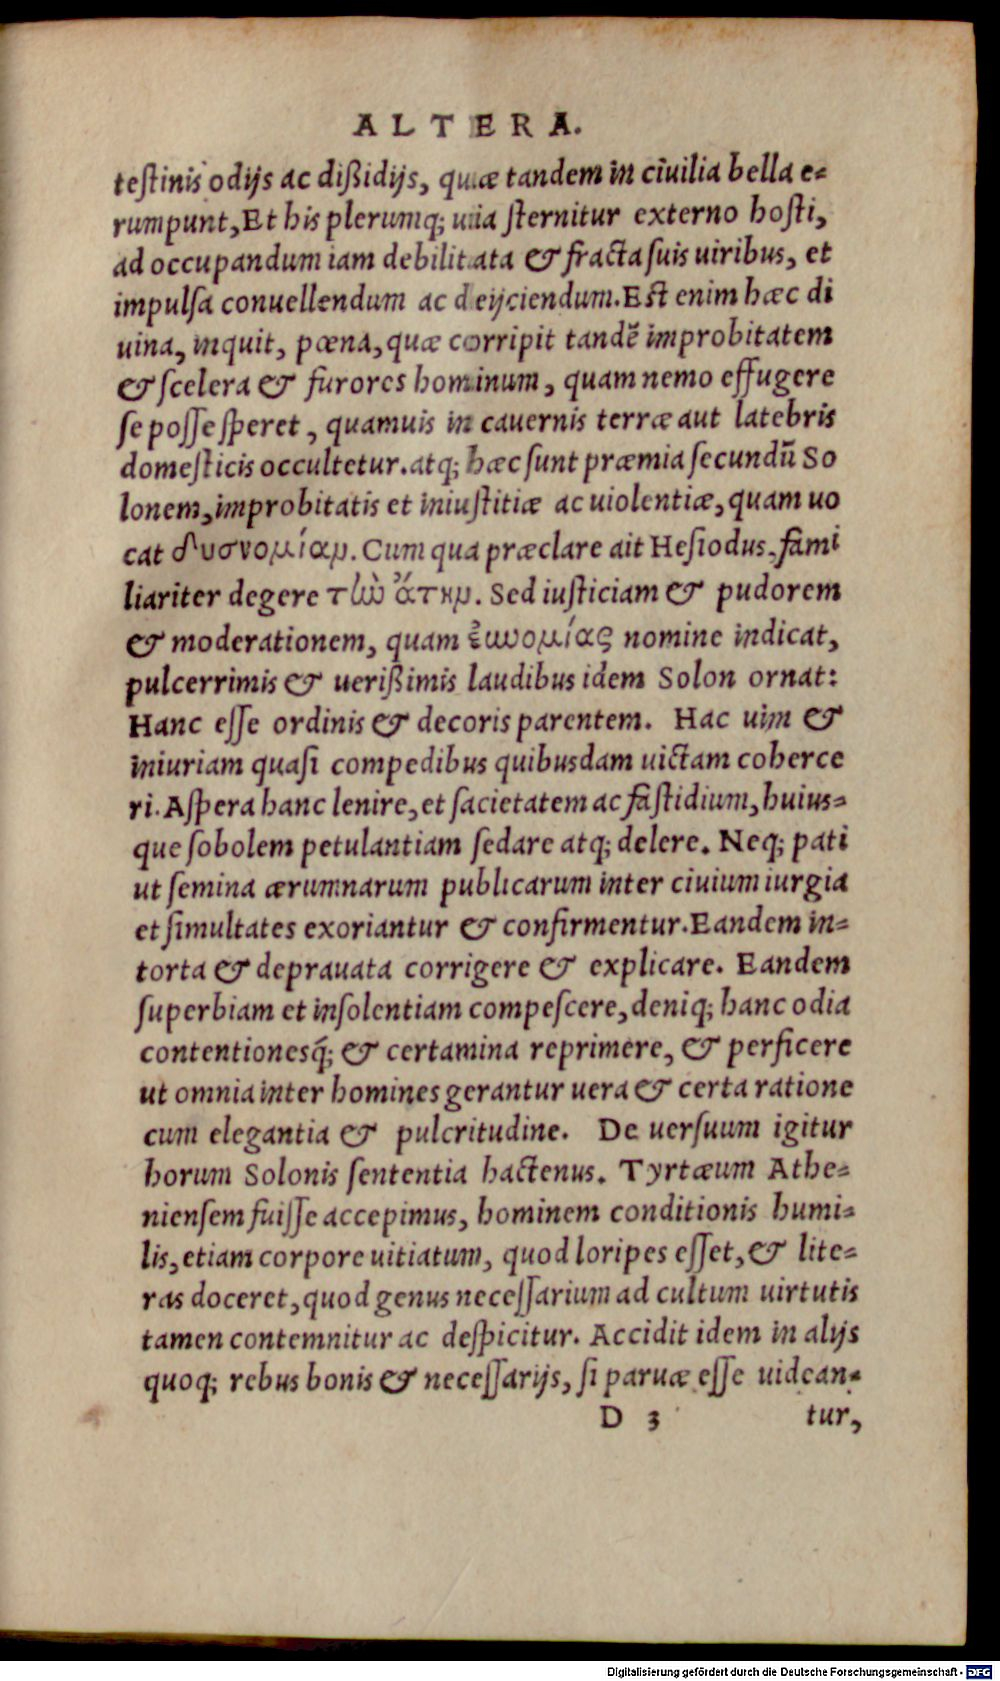 ALTERA.
testinis odijs ac dißidijs, quæ tandem in ciuilia bella e-
rumpunt, Et his plerumq; uia sternitur externo hosti,
ad occupandum iam debilitata & fracta suis uiribus, et
impulsa conuellendum ac deijciendum. Est enim hæc di
uina, inquit, pœna, quæ corripit tandẽ improbitatem
& scelera & furores hominum, quam nemo effugere
se posse speret, quamuis in cauernis terræ aut latebris
domesticis occultetur. atq; hæc sunt præmia secundũ So
lonem, improbitatis et iniustitiæ ac uiolentiæ, quam uo
cat δυσνομίαμ. Cum qua præclare ait Hesiodus, fami
liariter degere τὼ ἄτημ. Sed iusticiam & pudorem
& moderationem, quam ἐυνομίας nomine indicat,
pulcerrimis & uerißimis laudibus idem Solon ornat:
Hanc esse ordinis & decoris parentem. Hac uim &
iniuriam quasi compedibus quibusdam uictam coherce
ri. Aspera hanc lenire, et sacietatem ac fastidium, huius-
que sobolem petulantiam sedare atq; delere. Neq; pati
ut semina ærumnarum publicarum inter ciuium iurgia
et simultates exoriantur & confirmentur. Eandem in-
torta & deprauata corrigere & explicare. Eandem
superbiam et insolentiam compescere, deniq; hanc odia
contentionesq́; & certamina reprimere, & perficere
ut omnia inter homines gerantur uera & certa ratione
cum elegantia & pulcritudine. De uersuum igitur
horum Solonis sententia hactenus. Tyrtæum Athe-
niensem fuisse accepimus, hominem conditionis humi-
lis, etiam corpore uitiatum, quod loripes esset, & lite-
ras doceret, quod genus necessarium ad cultum uirtutis
tamen contemnitur ac despicitur. Accidit idem in alijs
quoq; rebus bonis & necessarijs, si paruæ esse uidean-
D 3 tur,
Digitalisierung gefördert durch die Deutsche Forschungsgemeinschaft - DFG